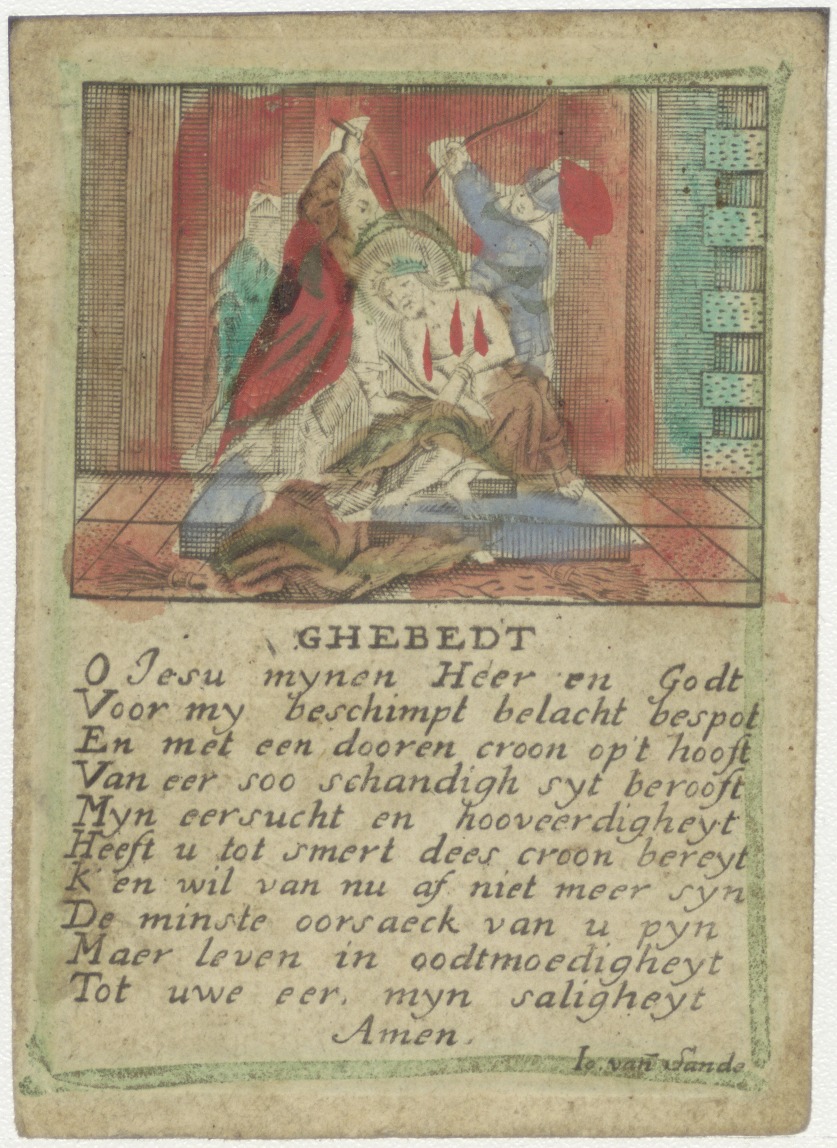 GHEBEDT
O Iesu mynen Heer en Godt
Voor my beschimpt belacht bespot
En met een dooren croon op't hooft
Van eer soo schandigh syt berooft
Myn eersucht en hooveerdigheyt
Heeft u tot smert dees croon bereyt
K'en wil van nu af niet meer syn
De minste oorsaeck van u pyn
Maer leven in oodtmoedigheyt
Tot uwe eer, myn saligheyt
Amen.
Io. van Sande